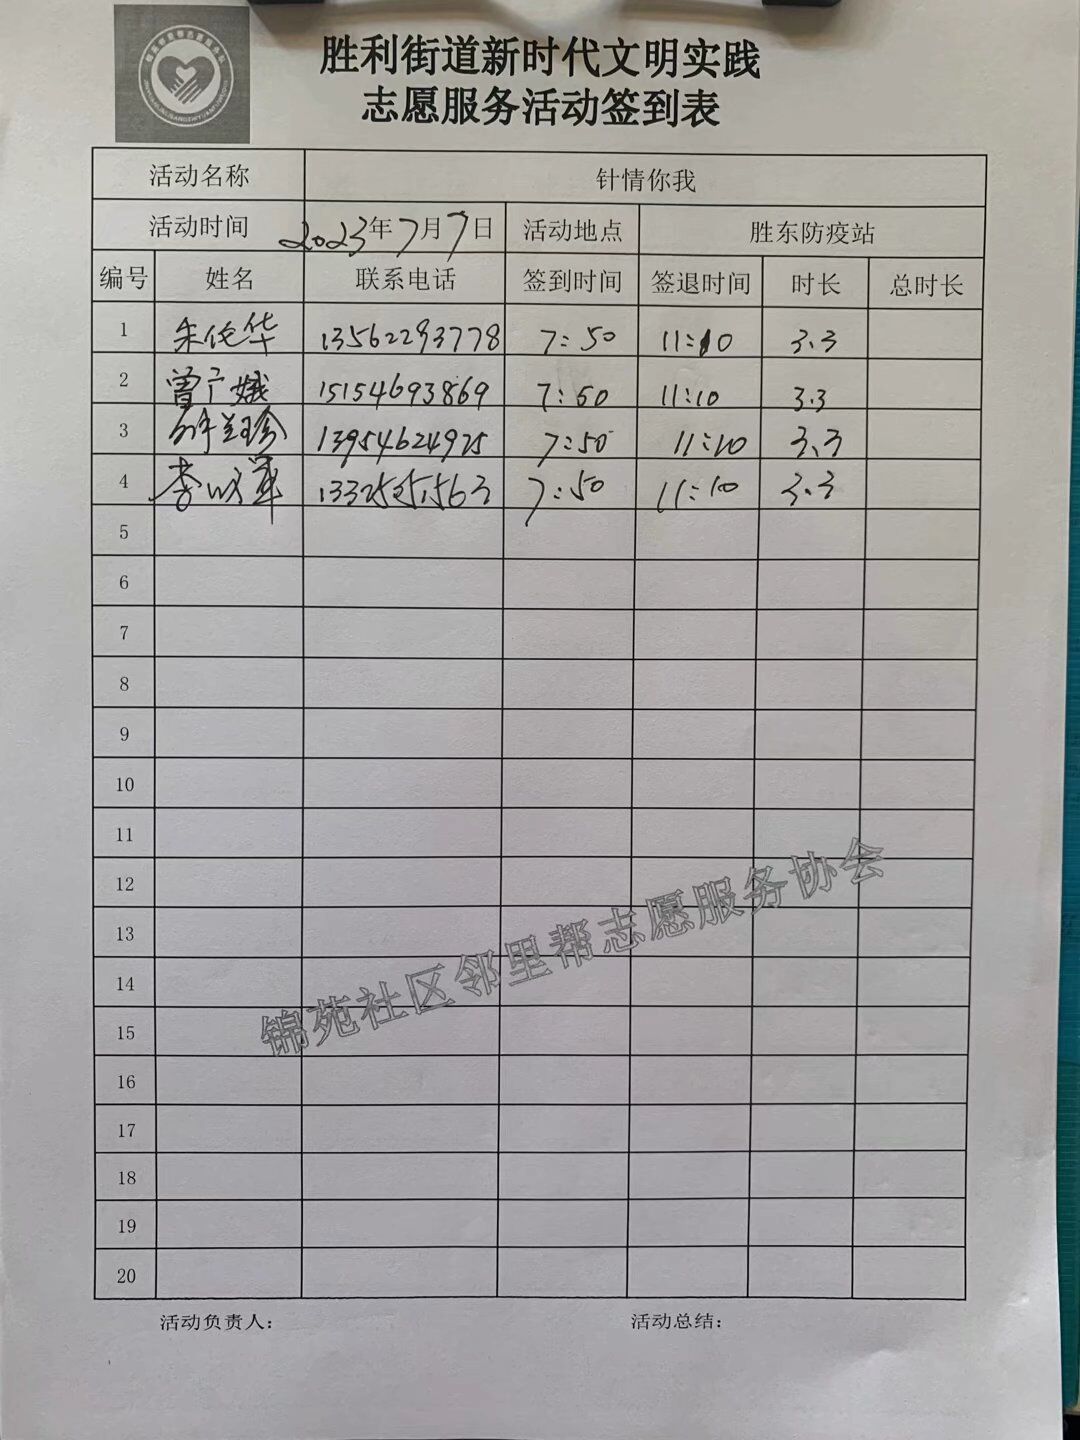 胜利街道新时代文明实践
志愿服务活动签到表
活动名称 针情你我
活动时间 2023年7月7日 活动地点 胜东防疫站
编号 姓名 联系电话 签到时间 签退时间 时长 总时长
1 朱伦华 13562293778 7:50 11:10 3.3
2 曾广娥 15154693869 7:50 11:10 3.3
3 珍 13954624925 7:50 11:10 3.3
4 李 7:50 11:10 3.3
5
6
7
8
9
10
11
12
13
14
15
16
17
18
19
20
锦苑社区邻里帮志愿服务协会
活动负责人: 活动总结: